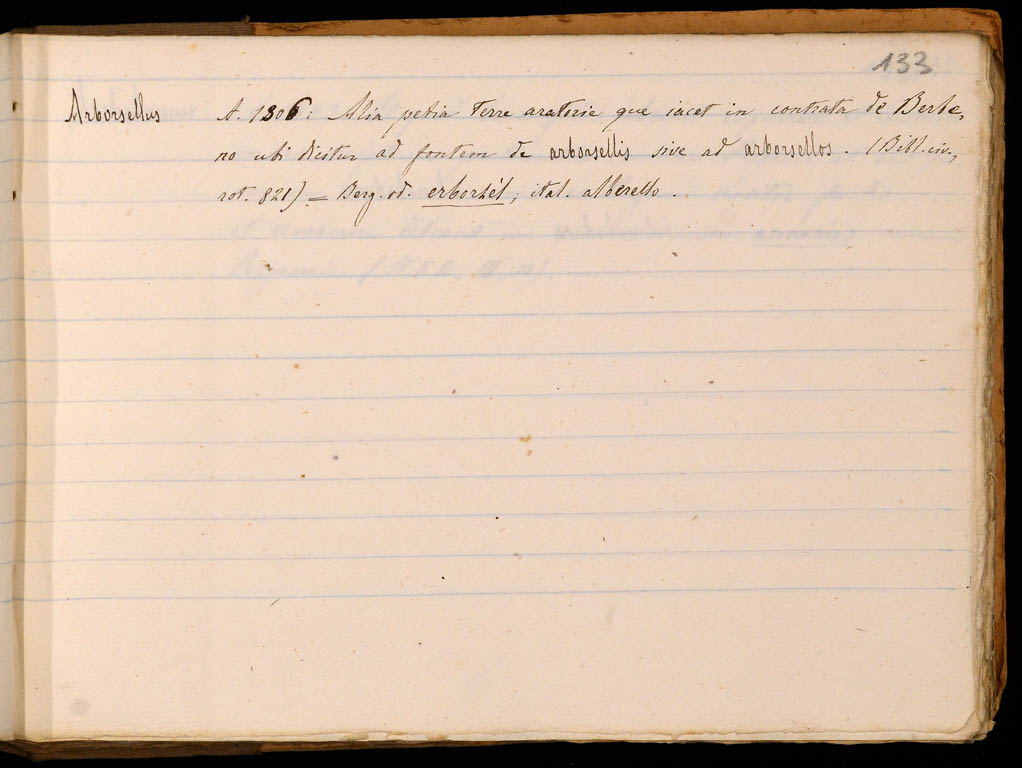 133
Arborsellus A. 1306: Alia petia terre aratorie que iacet in contrata de Berbe,
no ubi dicitur ad fontem de arborsellis sive ad arborsellos. (Bibl. civ.,
rot. 821) = Berg. od. erborsèl, ital. alberello.